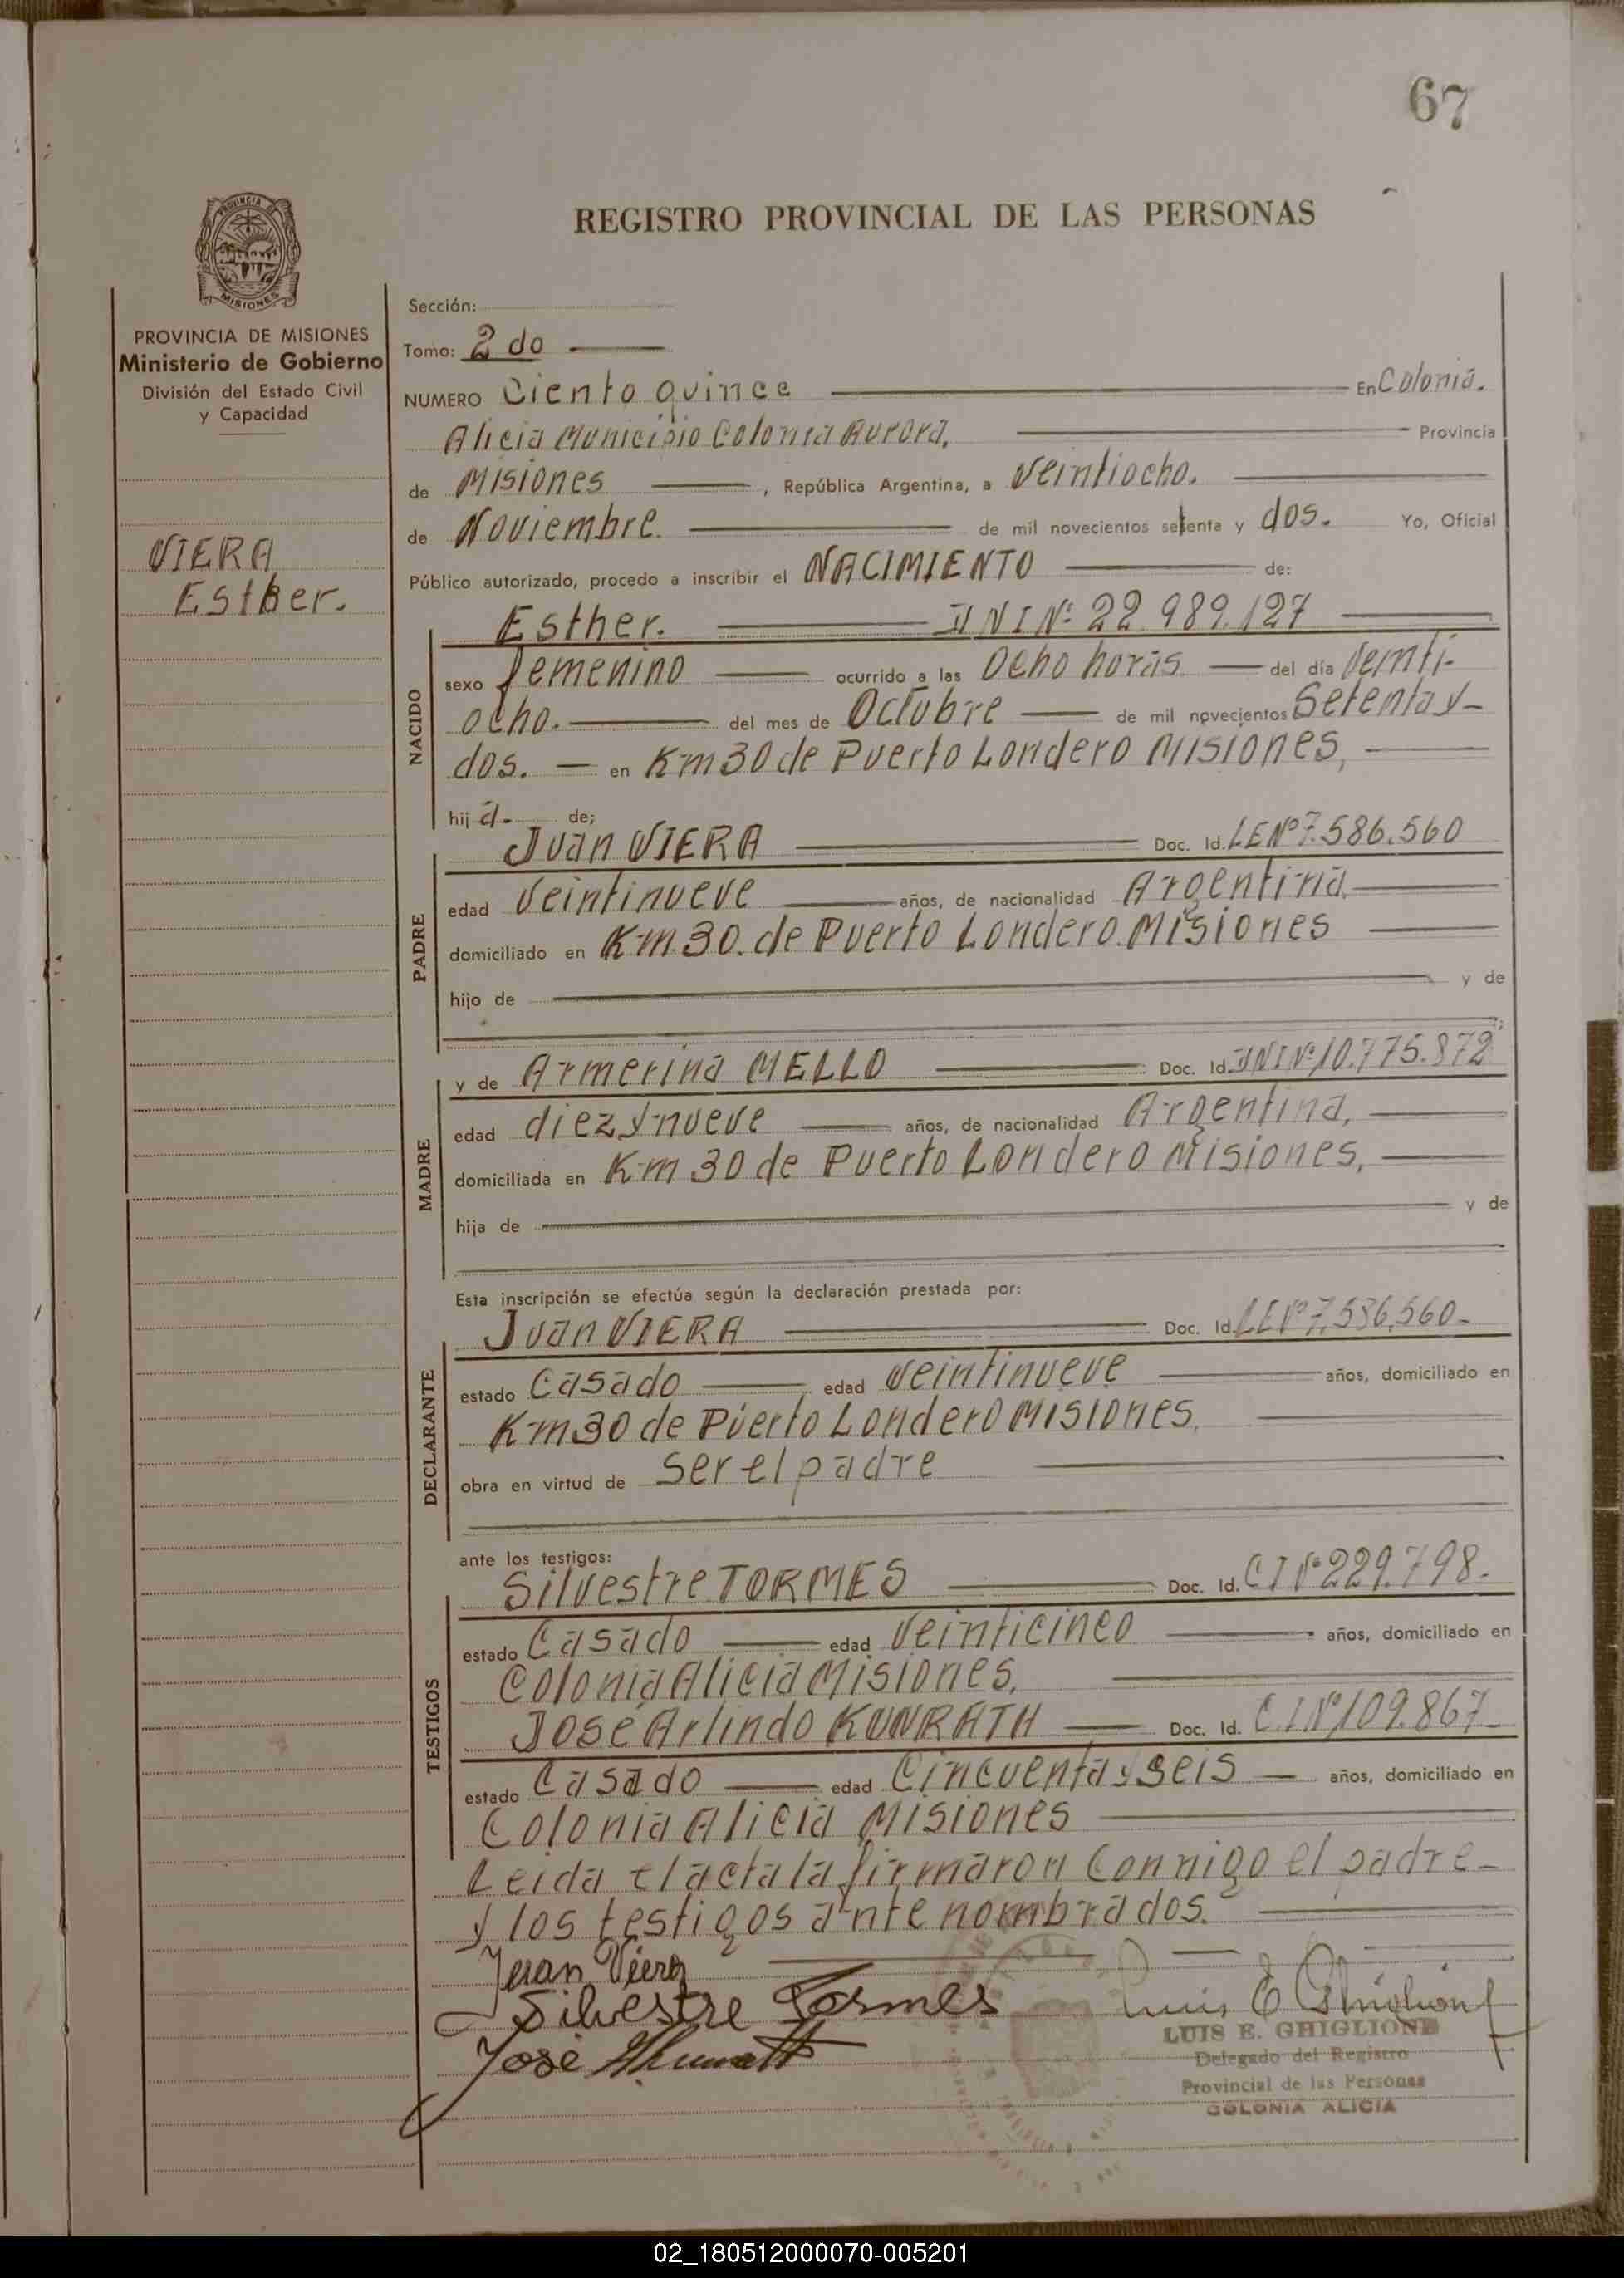 67
REGISTRO PROVINCIAL DE LAS PERSONAS
PROVINCIA DE MISIONES
PROVINCIA DE MISIONES
Ministerio de Gobierno
División del Estado Civil
y Capacidad
VIERA
Esther.
Sección:
Tomo: 2 do
NUMERO Ciento quince En Colonia.
Alicia Municipio Colonia Aurora. Provincia
de Misiones , República Argentina, a Veintiocho.
de Noviembre. de mil novecientos setenta y dos. Yo, Oficial
Público autorizado, procedo a inscribir el NACIMIENTO de:
Esther. DNI Nº 22.989.127
NACIDO
sexo femenino ocurrido a las Ocho horas del día Veinti-
ocho. del mes de Octubre de mil novecientos Setenta y-
dos. en Km 30 de Puerto Londero Misiones,
hij a. de;
Juan VIERA Doc. Id. LE Nº 7.586.560
PADRE
edad Veintinueve años, de nacionalidad Argentina.
domiciliado en Km. 30. de Puerto Londero. Misiones
hijo de y de
y de Armerina MELLO Doc. Id. DNI Nº 10.775.872
MADRE
edad diez y nueve años, de nacionalidad Argentina,
domiciliada en Km 30 de Puerto Londero Misiones,
hija de y de
Esta inscripción se efectúa según la declaración prestada por:
Juan VIERA Doc. Id. LE Nº 7.586.560-
DECLARANTE
estado Casado edad Veintinueve años, domiciliado en
Km 30 de Puerto Londero Misiones.
obra en virtud de ser el padre
ante los testigos:
Silvestre TORMES Doc. Id. CI Nº 229.798.
TESTIGOS
estado Casado edad Veinticinco años, domiciliado en
Colonia Alicia Misiones.
José Arlindo KUNRATH Doc. Id. C.I Nº 109.867-
estado Casado edad Cincuenta y seis años, domiciliado en
Colonia Alicia Misiones
Leida el acta la firmaron Conmigo el padre-
y los testigos ante nombrados.
Juan Viera
Silvestre Tormes
José
Luis E Ghiglione
LUIS E. GHIGLIONE
Delegado del Registro
Provincial de las Personas
COLONIA ALICIA
02_180512000070-005201